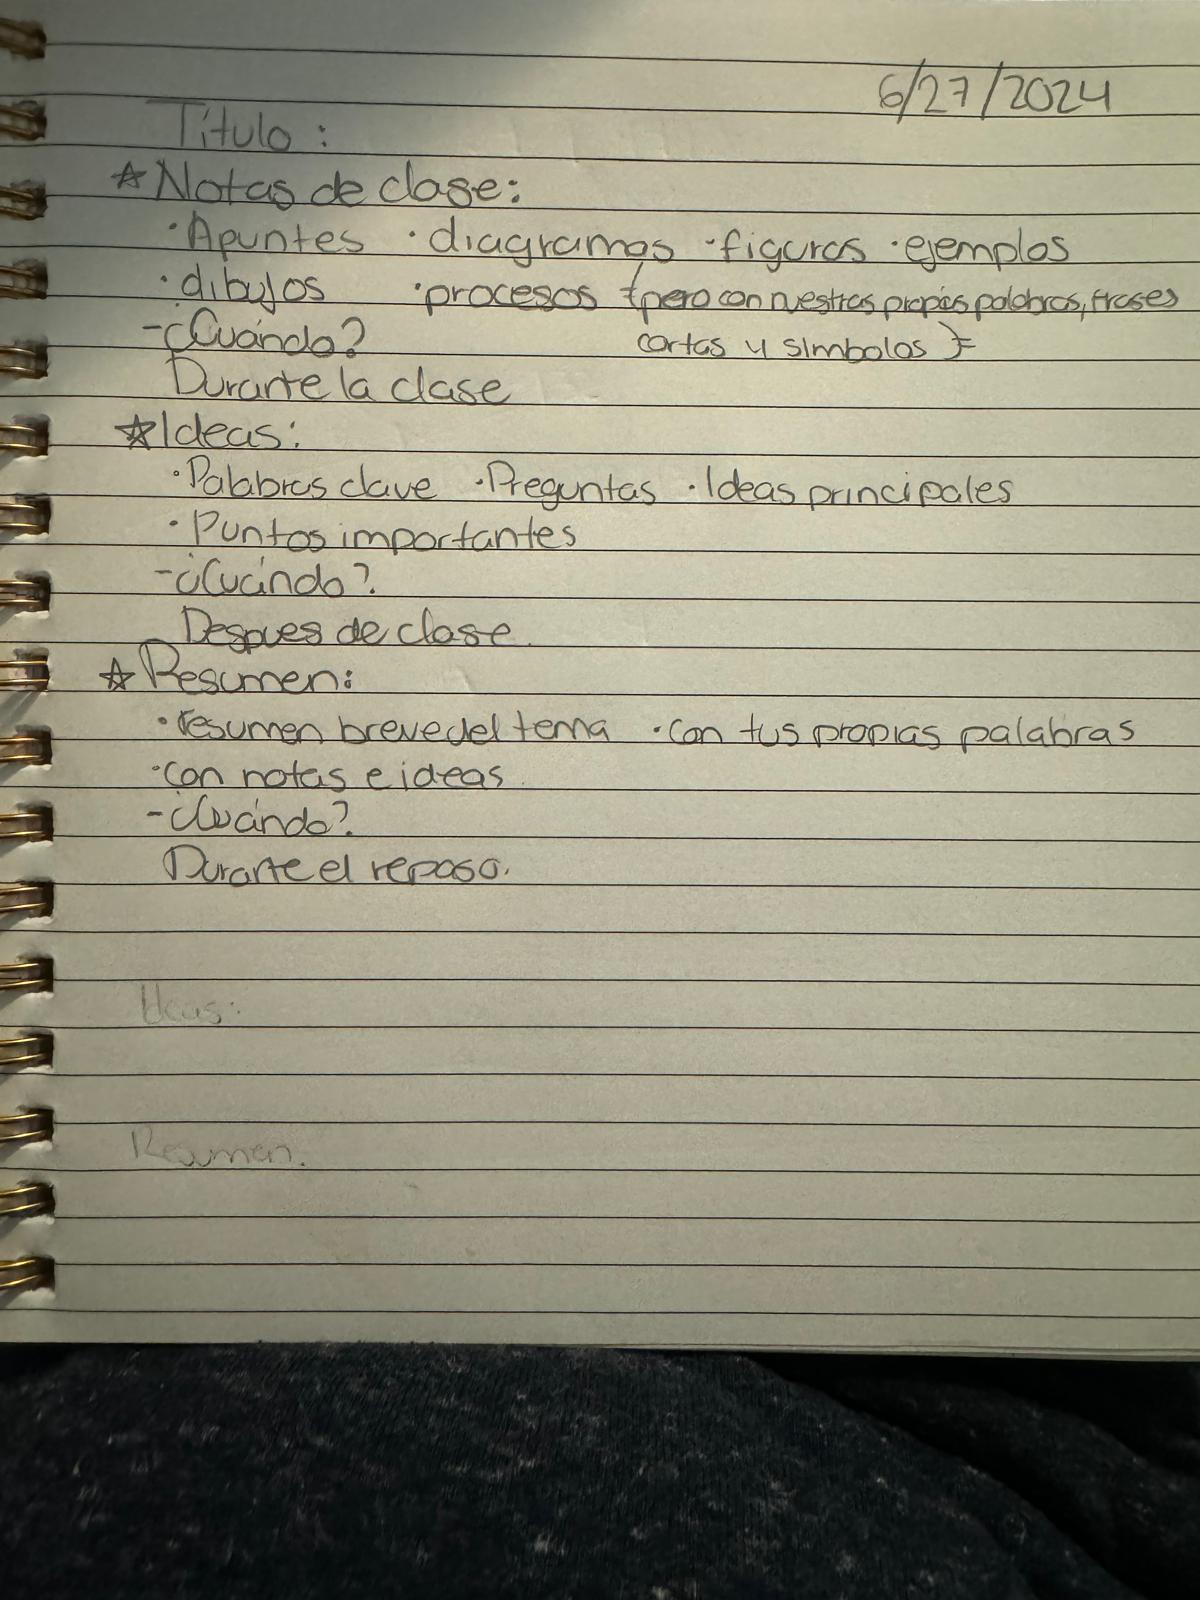 6/27/2024
Título :
☆ Notas de clase:
· Apuntes · diagramas · figuras · ejemplos
· dibujos · procesos {pero con nuestras propias palabras, frases
cortas y símbolos }
- ¿Cuándo?
Durante la clase
☆ Ideas:
· Palabras clave · Preguntas · Ideas principales
· Puntos importantes
- ¿Cuándo?
Despues de clase.
☆ Resumen:
· resumen breve del tema · con tus propias palabras
· con notas e ideas.
- ¿Cuándo?
Durante el repaso.
Ideas:
Resumen.